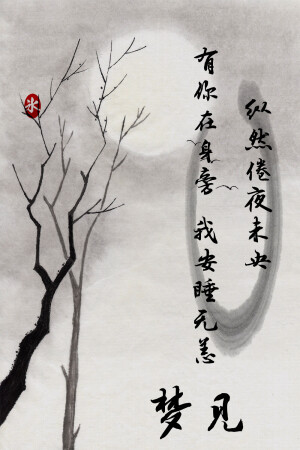 纵然倦夜未央
有你在身旁 我安睡无恙
梦见
氷